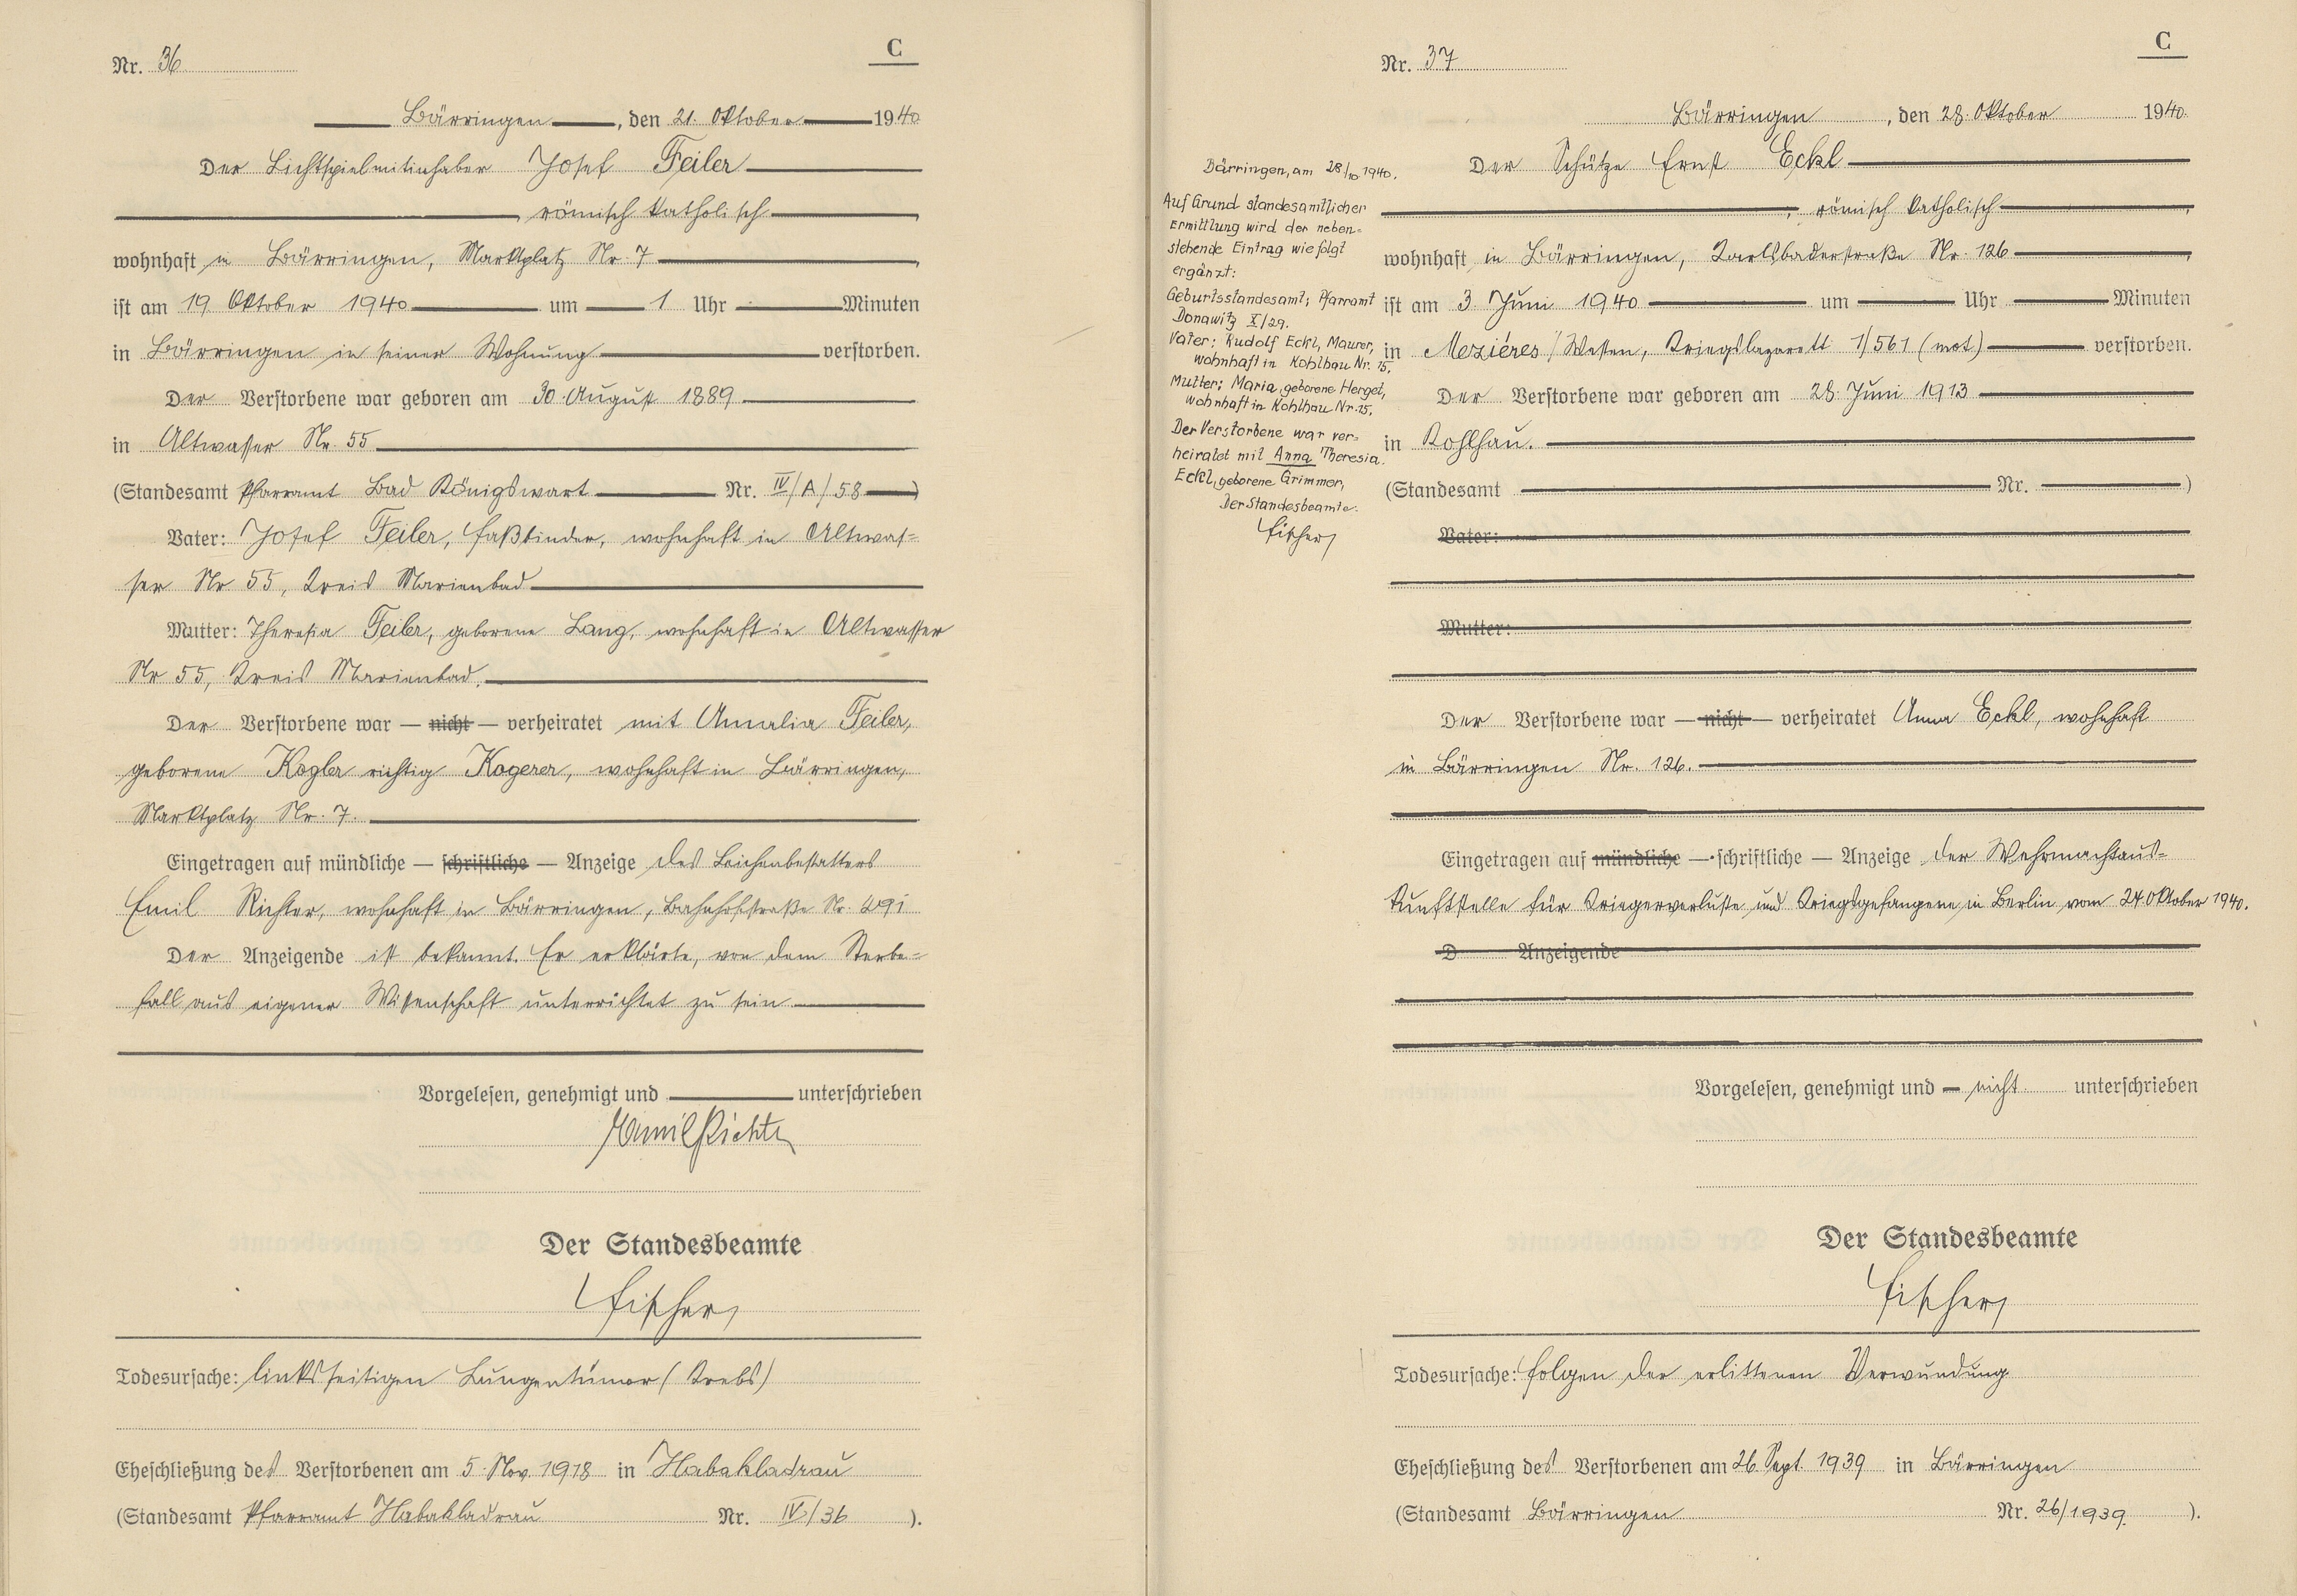 Nr. 36
C
Bärringen, den 21. Oktober 1940
Der Lichtspielmitinhaber Josef Feiler
, römisch katholisch,
wohnhaft in Bärringen, Marktplatz Nr. 7,
ist am 19. Oktober 1940 um 1 Uhr Minuten
in Bärringen in seiner Wohnung verstorben.
Der Verstorbene war geboren am 30. August 1889
in Altwasser Nr. 55
(Standesamt Pfarramt Bad Königswart Nr. IV/A/58)
Vater: Josef Feiler, Faßbinder, wohnhaft in Altwas=
ser Nr 55, Kreis Marienbad
Mutter: Theresia Feiler, geborene Lang, wohnhaft in Altwasser
Nr 55, Kreis Marienbad.
Der Verstorbene war — nicht — verheiratet mit Amalia Feiler,
geborene Kogler richtig Kogerer, wohnhaft in Bärringen,
Marktplatz Nr. 7.
Eingetragen auf mündliche — schriftliche — Anzeige des Leichenbestatters
Emil Richter, wohnhaft in Bärringen, Bahnhofstraße Nr. 491
Der Anzeigende ist bekannt. Er erklärte, von dem Sterbe=
fall aus eigener Wissenschaft unterrichtet zu sein
Vorgelesen, genehmigt und unterschrieben
Emil Richter
Der Standesbeamte
Fischer
Todesursache: linksseitigen Lungentumor (Krebs)
Eheschließung des Verstorbenen am 5. Nov. 1918 in Habakladrau
(Standesamt Pfarramt Habakladrau Nr. IV/36 ).
Nr. 37
C
Bärringen, den 28. Oktober 1940.
Der Schütze Ernst Eckl
, römisch katholisch,
wohnhaft in Bärringen, Karlsbaderstraße Nr. 126,
ist am 3. Juni 1940 um Uhr Minuten
in Meziéres/Westen, Kriegslazarett 1/561 (mot) verstorben.
Der Verstorbene war geboren am 28. Juni 1913
in Kohlhau.
(Standesamt Nr. )
Vater:
Mutter:
Der Verstorbene war — nicht — verheiratet Anna Eckl, wohnhaft
in Bärringen Nr. 126.
Eingetragen auf mündliche — schriftliche — Anzeige der Wehrmachtaus=
kunftstelle für Kriegerverluste und Kriegsgefangene in Berlin vom 24. Oktober 1940.
D Anzeigende
Vorgelesen, genehmigt und — nicht unterschrieben
Der Standesbeamte
Fischer
Todesursache: Folgen der erlittenen Verwundung
Eheschließung des Verstorbenen am 26. Sept. 1939 in Bärringen
(Standesamt Bärringen Nr. 26/1939. ).
Bärringen, am 28/10 1940.
Auf Grund standesamtlicher
Ermittlung wird der neben=
stehende Eintrag wie folgt
ergänzt:
Geburtsstandesamt; Pfarramt
Donawitz X/29.
Vater: Rudolf Eckl, Maurer,
wohnhaft in Kohlhau Nr. 15.
Mutter: Maria, geborene Hergel,
wohnhaft in Kohlhau Nr. 15.
Der Verstorbene war ver=
heiratet mit Anna Theresia
Eckl, geborene Grimmer,
Der Standesbeamte:
Fischer